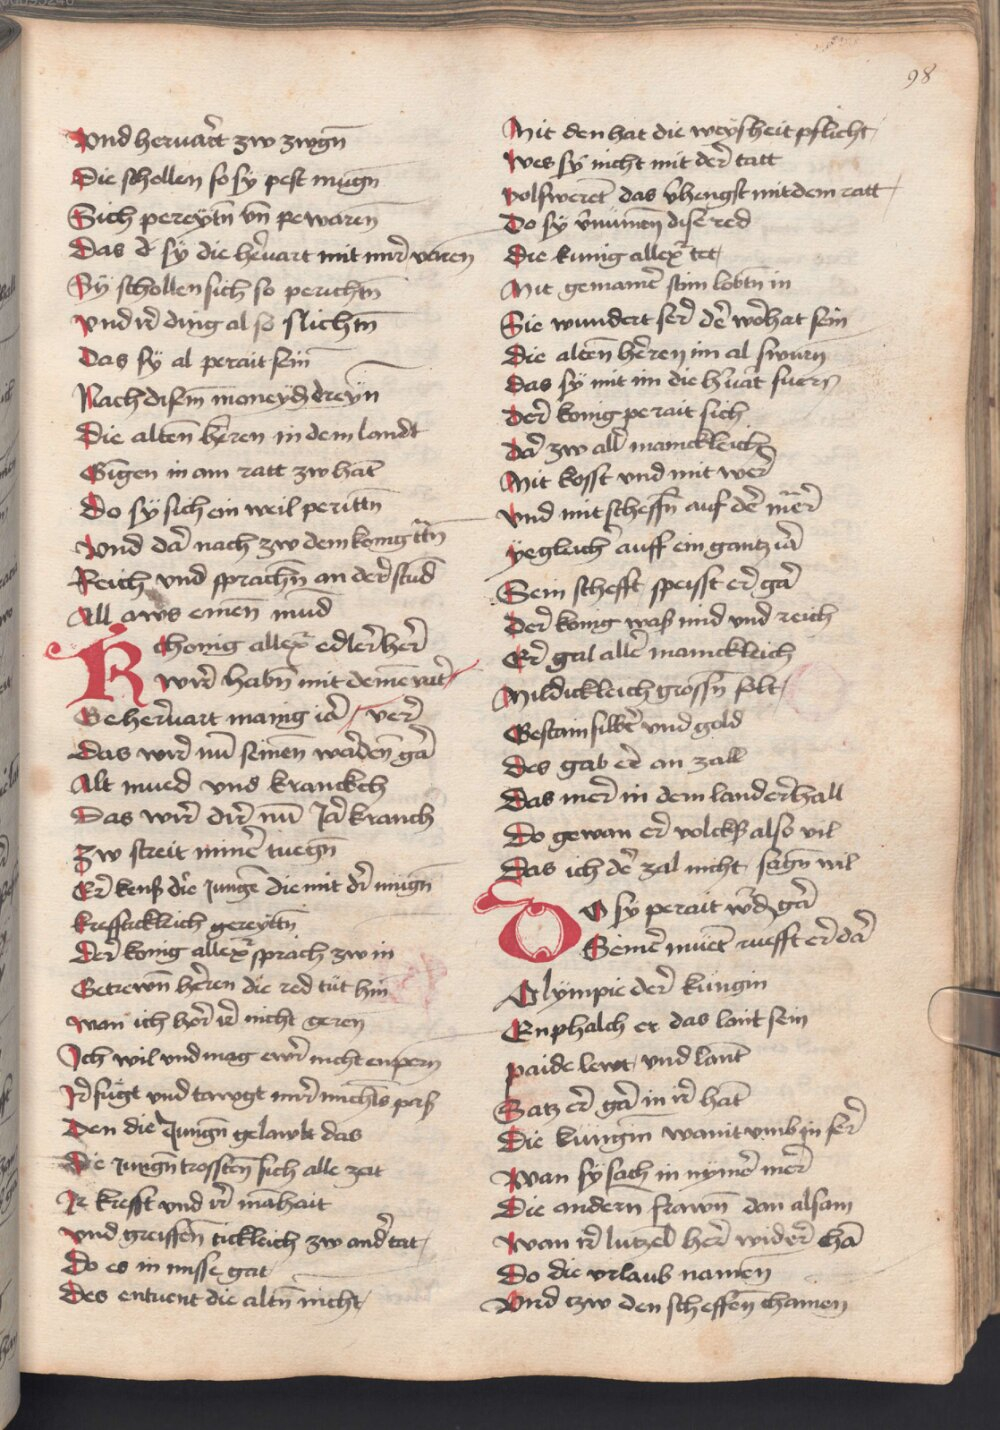 98
Vnd heruart zw zwgn̄
Die schollen so sy pest mugn
Sich pereytn̄ vn̄ pewaren
Das d̄ sy die heruart mit mir varen
Sy schollen sich so perichtn̄
Vnd ir̄ ding al so slichtn̄
Das sy al perait sein
Nach disem moneyd dreyn
Die alten heren in dem landt
Gingen in am ratt zw hāt
Do sy sich ein weil peritn̄
Vnd dar nach zw dem konig
Reich vnd sprachn̄ an der stūd
All aws einen mūd
Chonig allex̄ edler her
Wir̄ habn̄ mit deinē vat̄er
Geheruart manig iar
Das wir nū seinen warden gar
Alt mued vnd kranckch
Das wir̄ dir̄ nū Jar kranch
Zw streit miner tuegn̄
Er kenß die Jungē die mit dir mugn̄
krefftickleich gereyttn̄
Der konig allex̄ sprach zw in
Getrewn̄ heren die red tüt hin
wan ich hor ir̄ nicht geren
Ich wil vnd mag ewr̄ nicht enpern
Ir̄ fügt vnd tawgt mir̄ michls paß
Den die Jungn̄ gelawbt das
Die Jungn̄ trosten̄ sich alle zeit
Ir krefft vnd ir̄ manhait
vnd greiffen tickleich zw and̄er tat
Do es in misse gat
Des entuent die altn̄ nicht
Mit den hat die weysheit pflicht
Wes sy nicht mit der̄ tatt
volfweret das v̄hengst mit dem ratt
Do sy v̄numen dise red
Die kunig allex̄ tet
Mit gemain̄er stim lobtn̄ in
Sie wundert ser̄ der̄ worhat sein
Die alten heren im al swurn
Das sy mit im die h̄uart fuern
Der̄ konig perait sich
Dar̄ zw all̄ manickleich
Mit kosst vnd mit wer̄
vnd mit scheffn̄ auf de m̄er
yegleich auff ein gantz iār
Sein schefft speisst er gār
Der̄ konig waß mid vnd reich
Er̄ gal aller̄ manickleich
Mildickleich grossn̄ solt
Gestain silber̄ vnd gold
Des gab er̄ an zall
Das mer̄ in dem land erhall
Do gewan er̄ volckß also vil
Das ich der̄ zal nicht sagn̄ wil
Do sy perait wr̄dn gār
Seiner̄ muet̄ ruefft er̄ dar̄
Olympie der̄ küngin
Enphalch er das lant sein
paide lewt vnd lant̄
Satz er̄ gar̄ in ir̄ hāt
Die küngin wanit vmb in ser̄
Wan sy sach in nymer̄ mer̄
Die andern frawn̄ dan alsam
Wan ir̄ lutzel her̄ wider̄ chā
Do die vrlaub namen
Vnd zw den scheffen̄ chamen